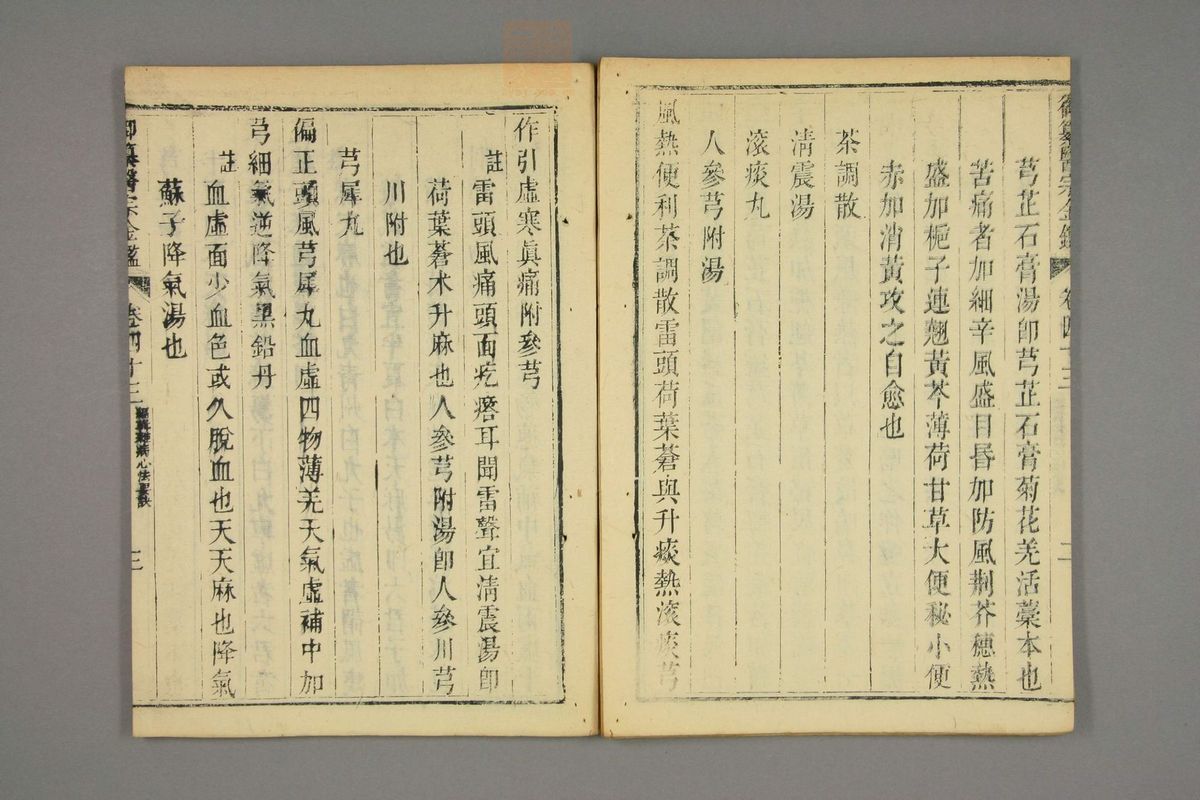 御纂醫宗金鑑 卷四十三 二
芎芷石膏湯卽芎芷石膏菊花羌活藁本也
苦痛者加細辛風盛目昏加防風荆芥穗熱
盛加梔子連翹黃芩薄荷甘草大便秘小便
赤加消黃攻之自愈也
茶調散
清震湯
滚痰丸
人參芎附湯
風熱便利茶調散雷頭荷葉蒼與升痰熱滚痰芎
作引虛寒眞痛附參芎
註雷頭風痛頭面疙瘩耳聞雷聲宜清震湯卽
荷葉蒼术升麻也人參芎附湯卽人參川芎
川附也
芎犀丸
偏正頭風芎犀丸血虛四物薄羌天氣虛補中加
芎細氣逆降氣黑鉛丹
註血虛面少血色或久脫血也天天麻也降氣
蘇子降氣湯也
御纂醫宗金鑑 卷四十三 雜病心法要訣 三